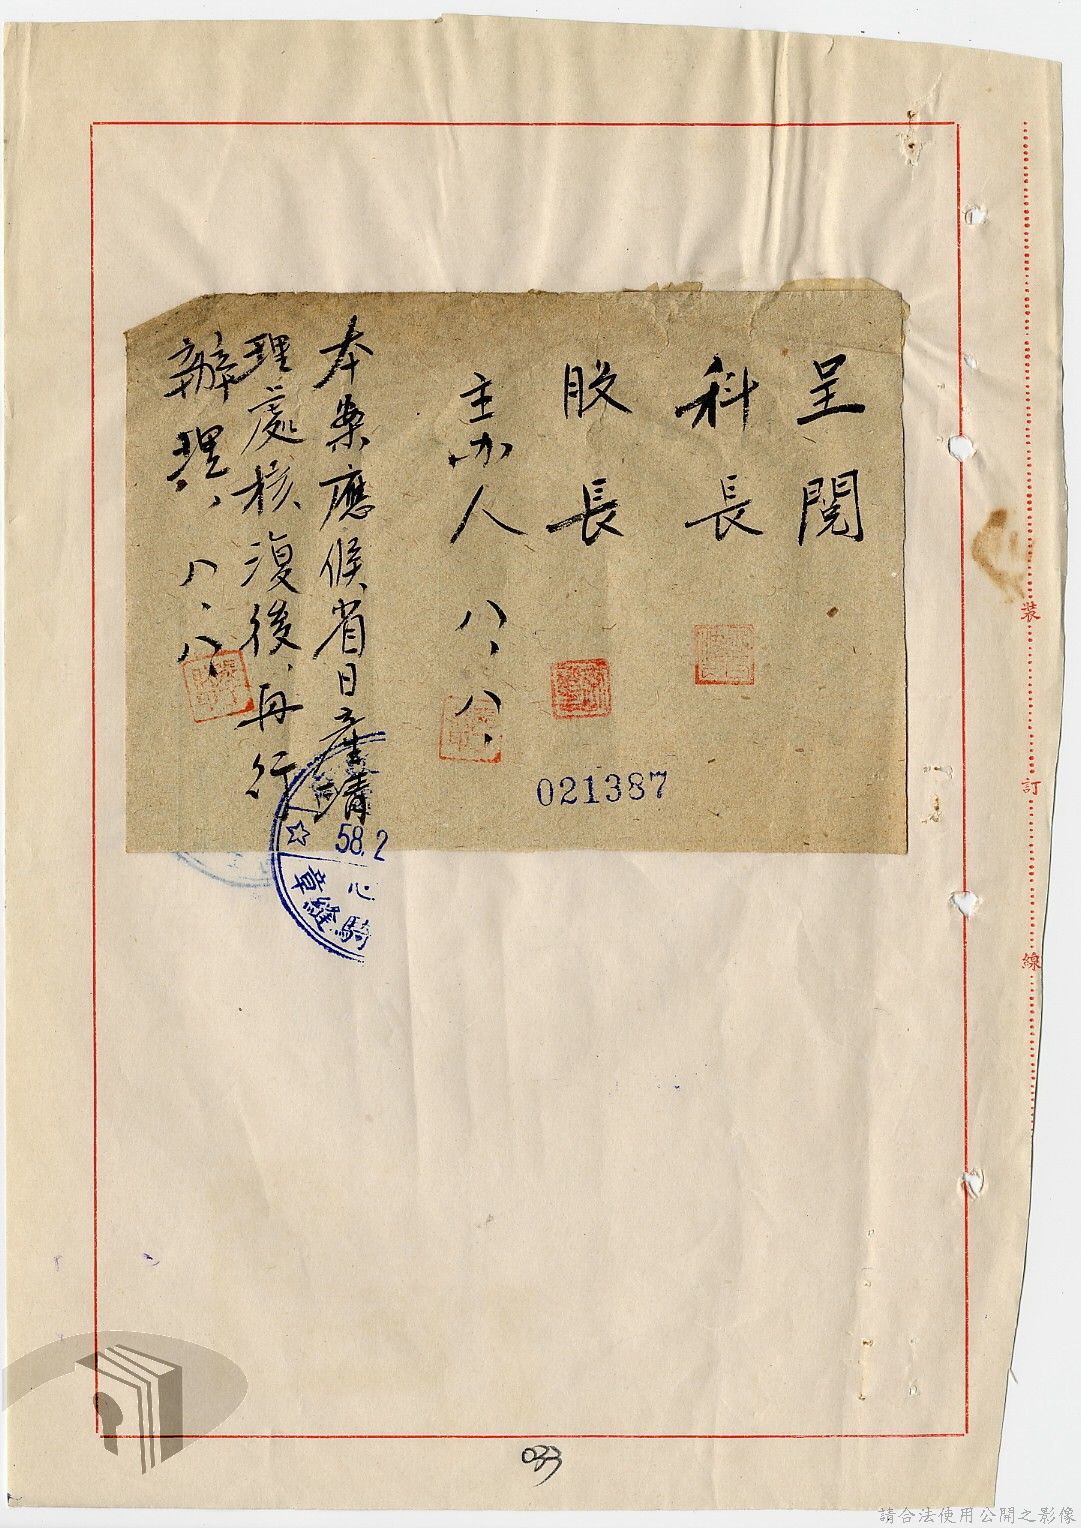 呈閱
科長
股長
主办人 八、八、
本案應候省日產清
理處核復後、再行
辦理、 八、八、
021387
58.2
心
騎縫章
裝
訂
線
033
請合法使用公開之影像